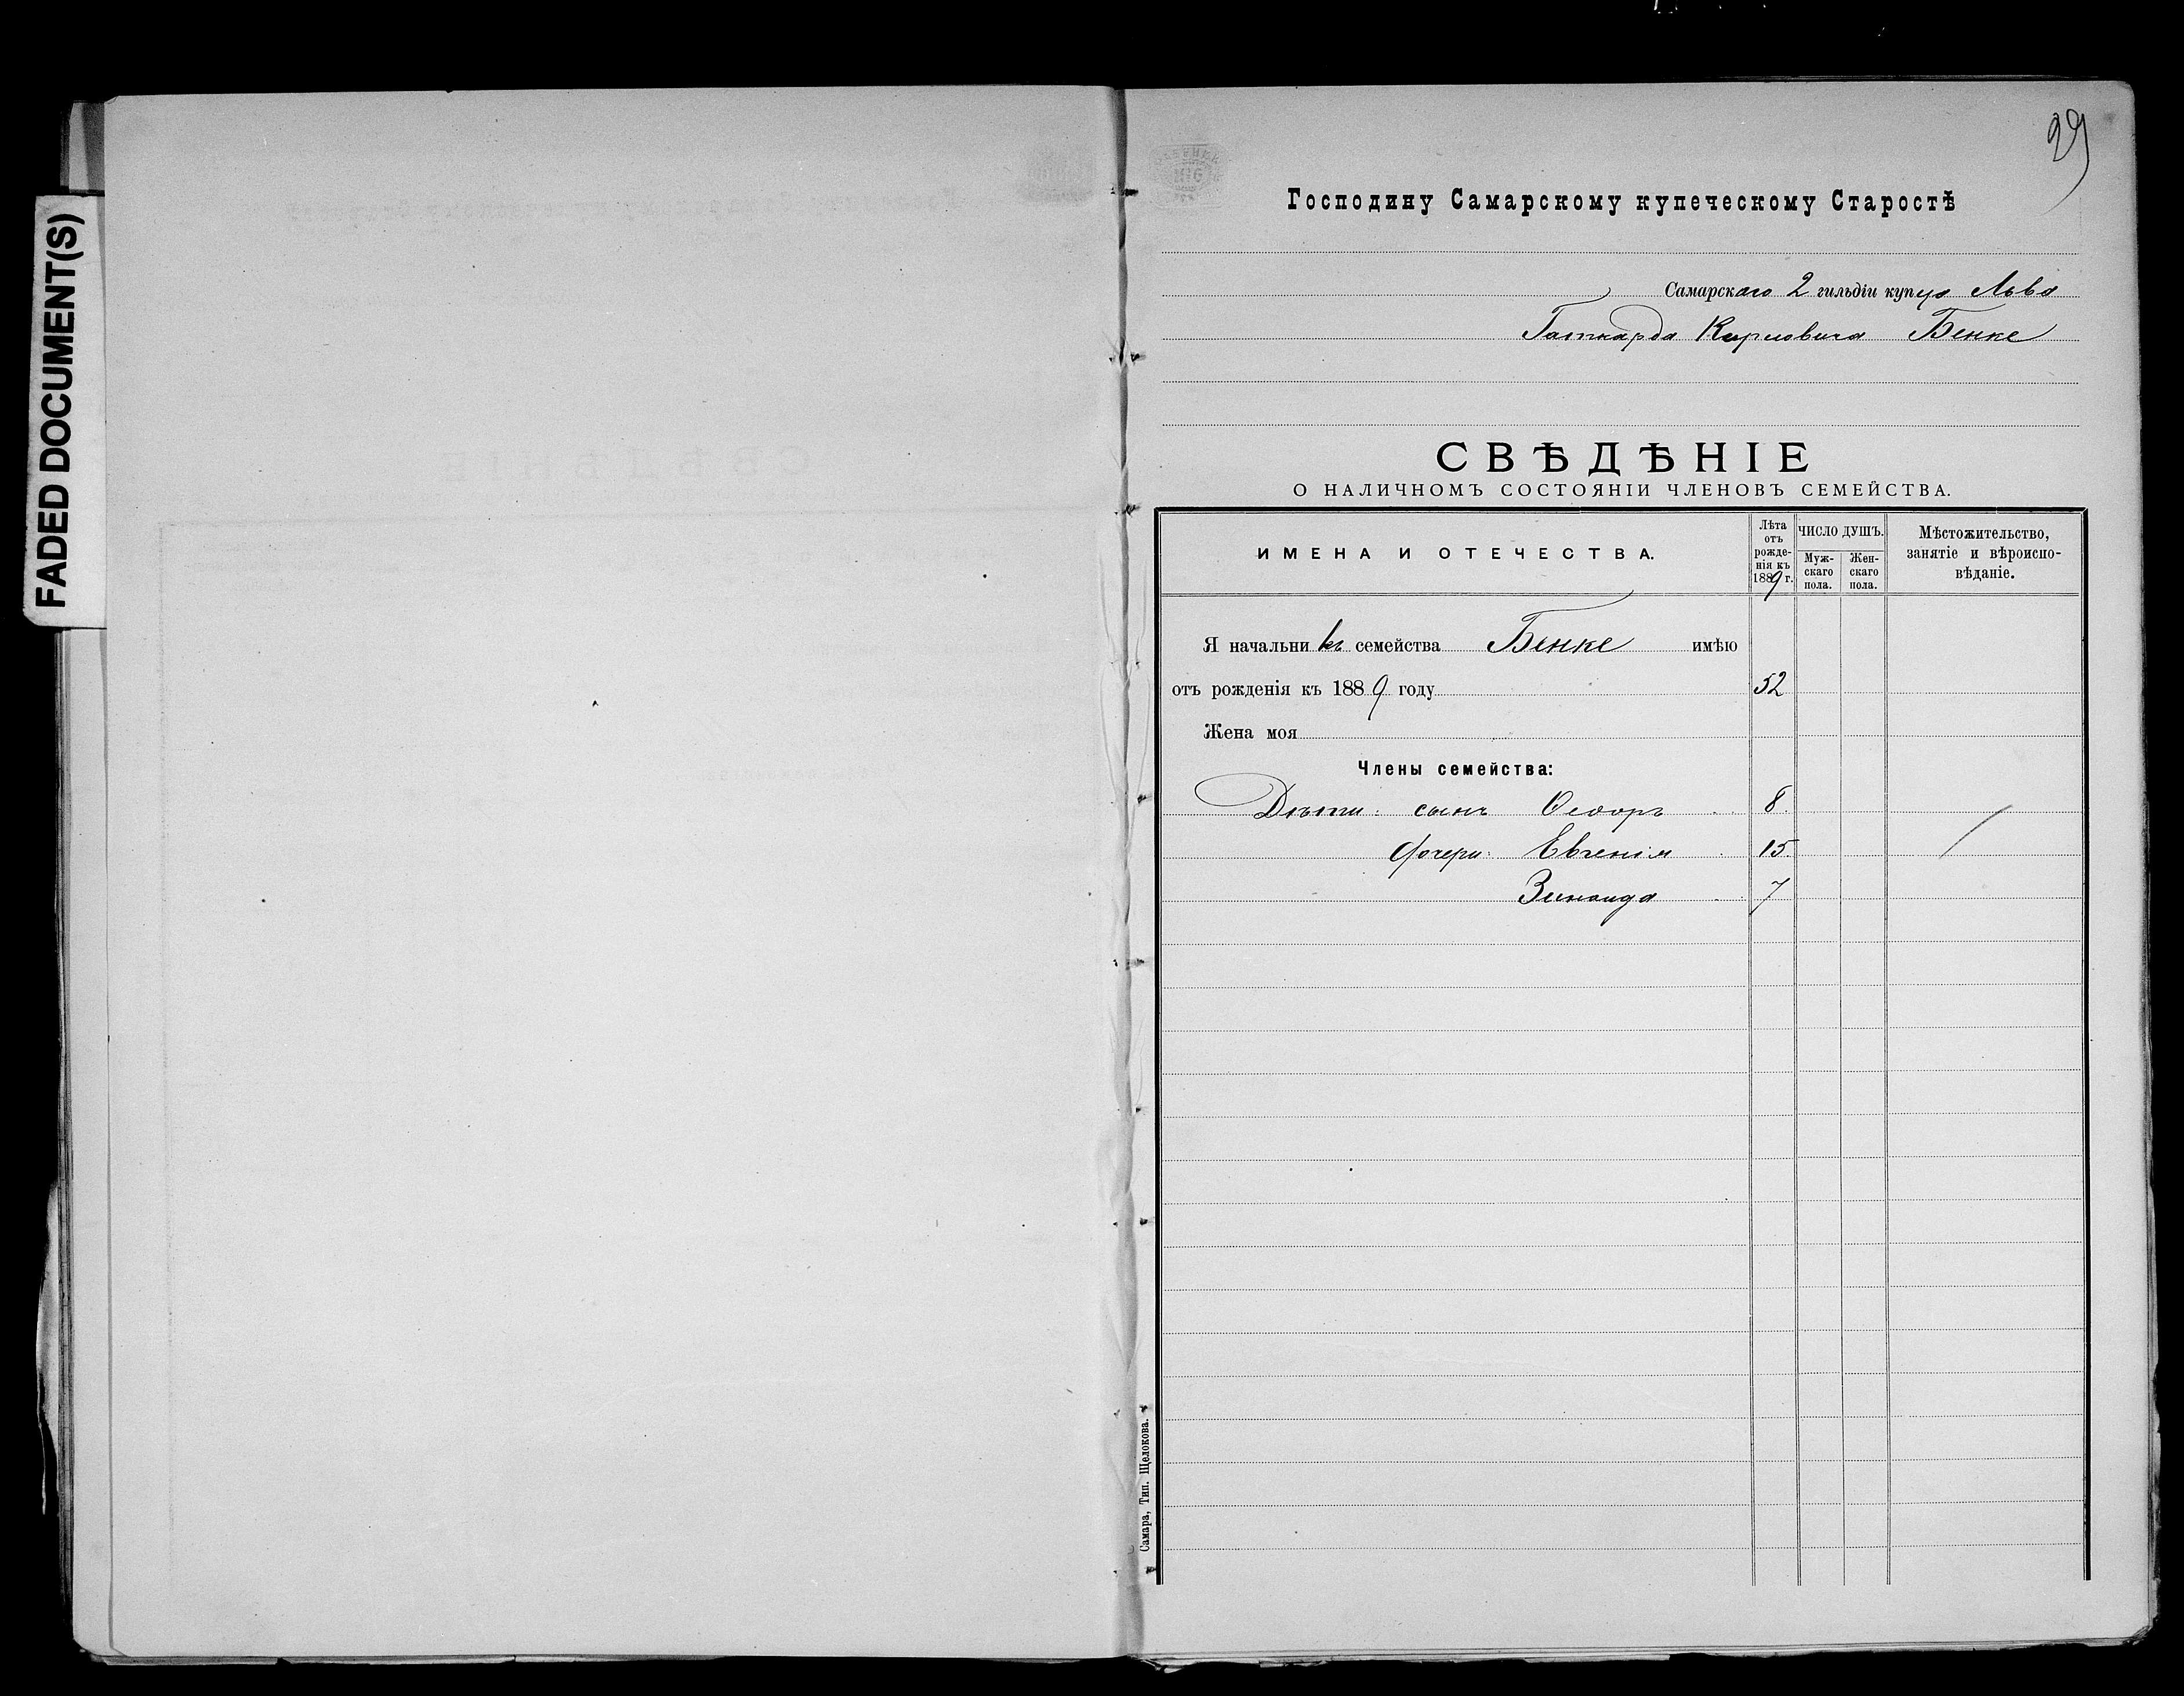 FADED DOCUMENT(S)
29
Господину Самарскому купеческому Старостѣ
Самарскаго 2 гильдіи купца Льва
Готгарда Карловича Бенке
СВѢДѢНІЕ
О НАЛИЧНОМЪ СОСТОЯНІИ ЧЛЕНОВЪ СЕМЕЙСТВА.
ИМЕНА И ОТЕЧЕСТВА.
Лѣта отъ рожде- нія къ 1889 г.
ЧИСЛО ДУШЪ.
Муж- скаго пола.
Жен- скаго пола.
Мѣстожительство,
занятіе и вѣроиспо-
вѣданіе.
Я начальникъ семейства Бенке имѣю
отъ рожденія къ 1889 году 52
Жена моя
Члены семейства:
Дѣти: сынъ Ѳедоръ 8
дочери: Евгенія 15
Зинаида 7
Самара, Тип. Щелокова.